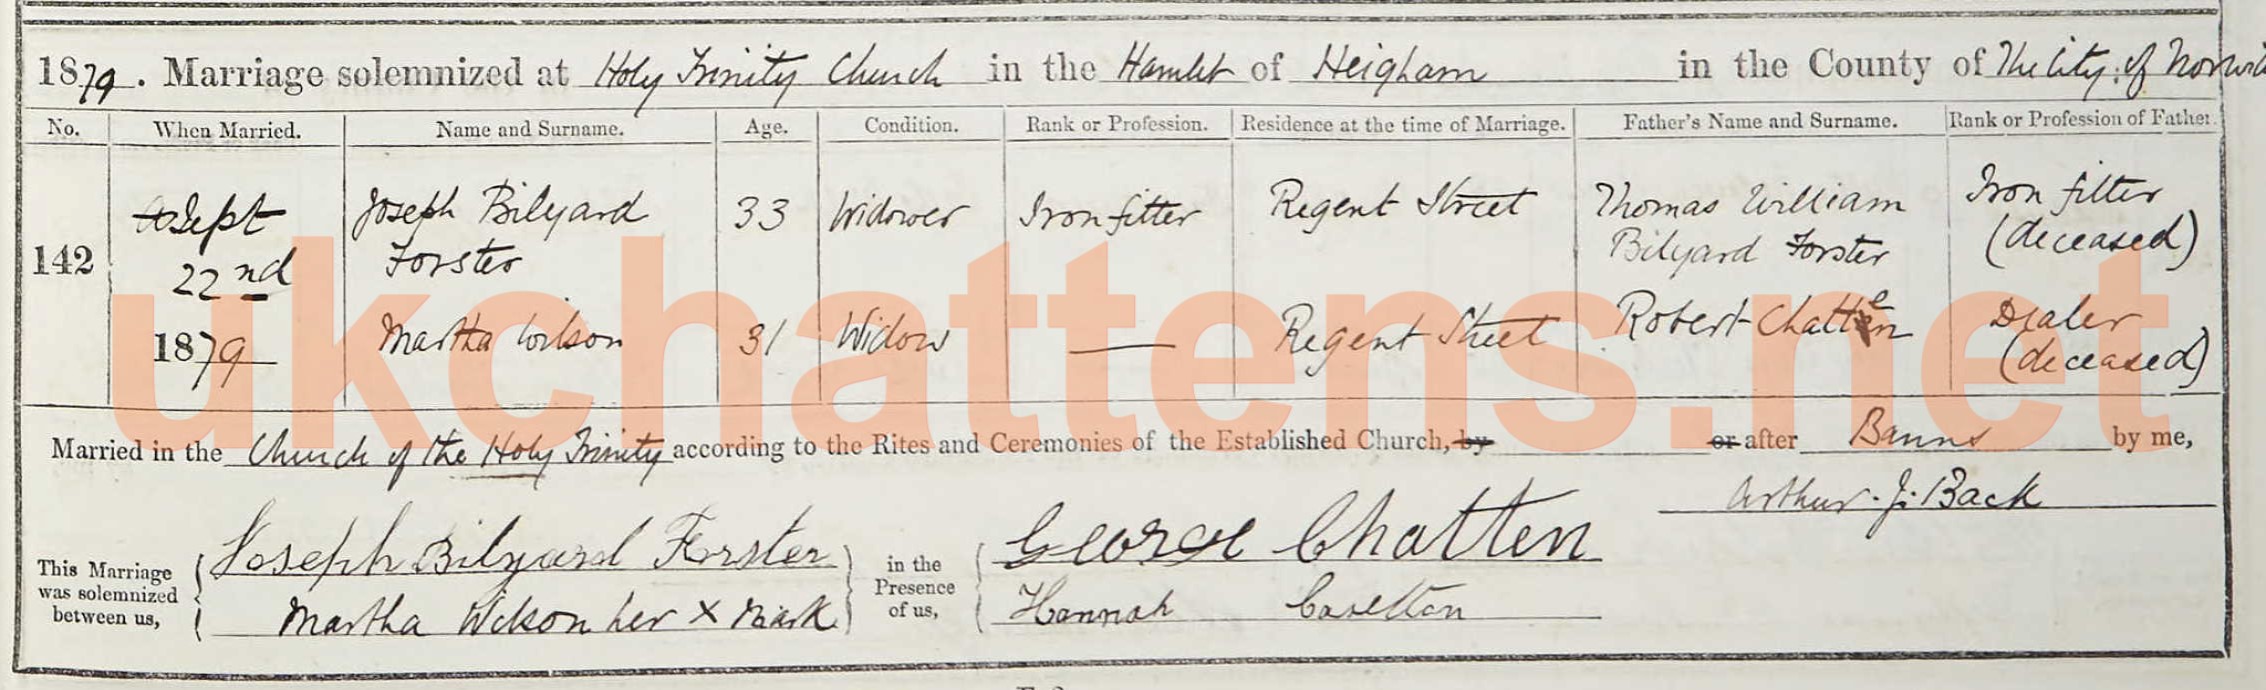 1879. Marriage solemnized at Holy Trinity Church in the Hamlet of Heigham in the County of The City of Norwic
No. When Married. Name and Surname. Age. Condition. Rank or Profession. Residence at the time of Marriage. Father's Name and Surname. Rank or Profession of Father.
142
Sept 22nd 1879
Joseph Bilyard Forster 33 Widower Iron fitter Regent Street Thomas William Bilyard Forster Iron fitter (deceased)
Martha Wilson 31 Widow — Regent Street Robert Chatten Dealer (deceased)
Married in the Church of the Holy Trinity according to the Rites and Ceremonies of the Established Church, by or after Banns by me,
Arthur. J. Back
This Marriage was solemnized between us,
Joseph Bilyard Forster
Martha Wilson her X Mark
in the Presence of us,
George Chatten
Hannah
ukchattens.net